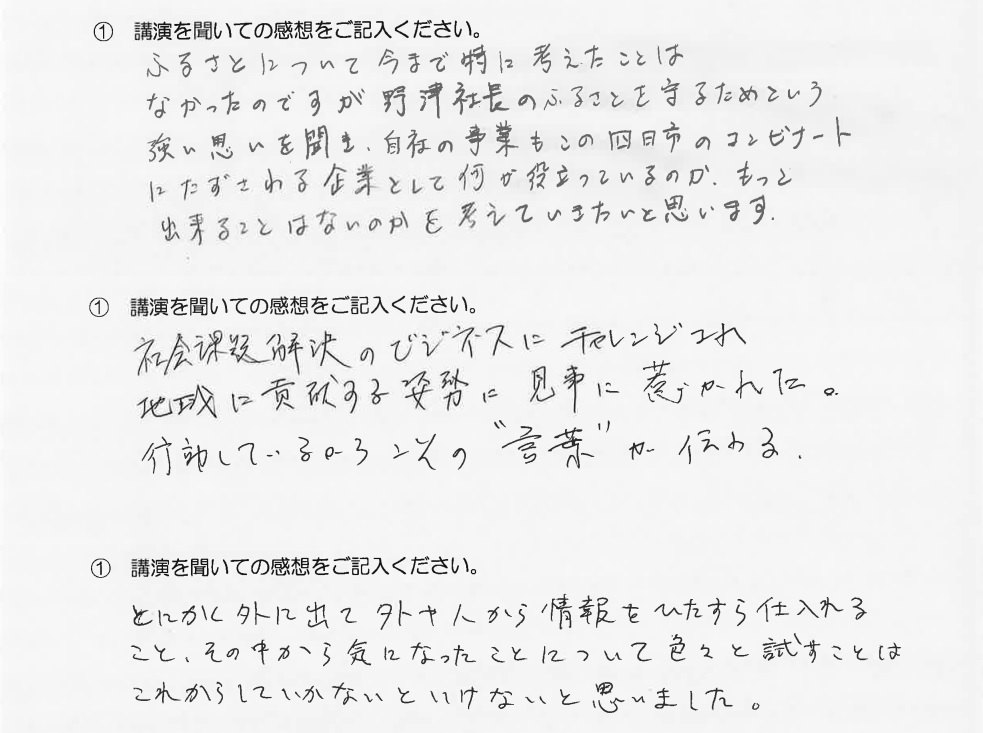 ① 講演を聞いての感想をご記入ください。
ふるさとについて今まで特に考えたことは
なかったのですが野津社長のふるさとを守るためという
強い思いを聞き、自社の事業もこの四日市のコンビナート
にたずさわる企業として何が役立っているのか、もっと
出来ることはないのかを考えていきたいと思います.
① 講演を聞いての感想をご記入ください。
社会課題解決のビジネスにチャレンジされ
地域に貢献する姿勢に見事に惹かれた。
行動しているからこその"言葉"が伝わる.
① 講演を聞いての感想をご記入ください。
とにかく外に出て外や人から情報をひたすら仕入れる
こと、その中から気になったことについて色々と試すことは
これからしていかないといけないと思いました。